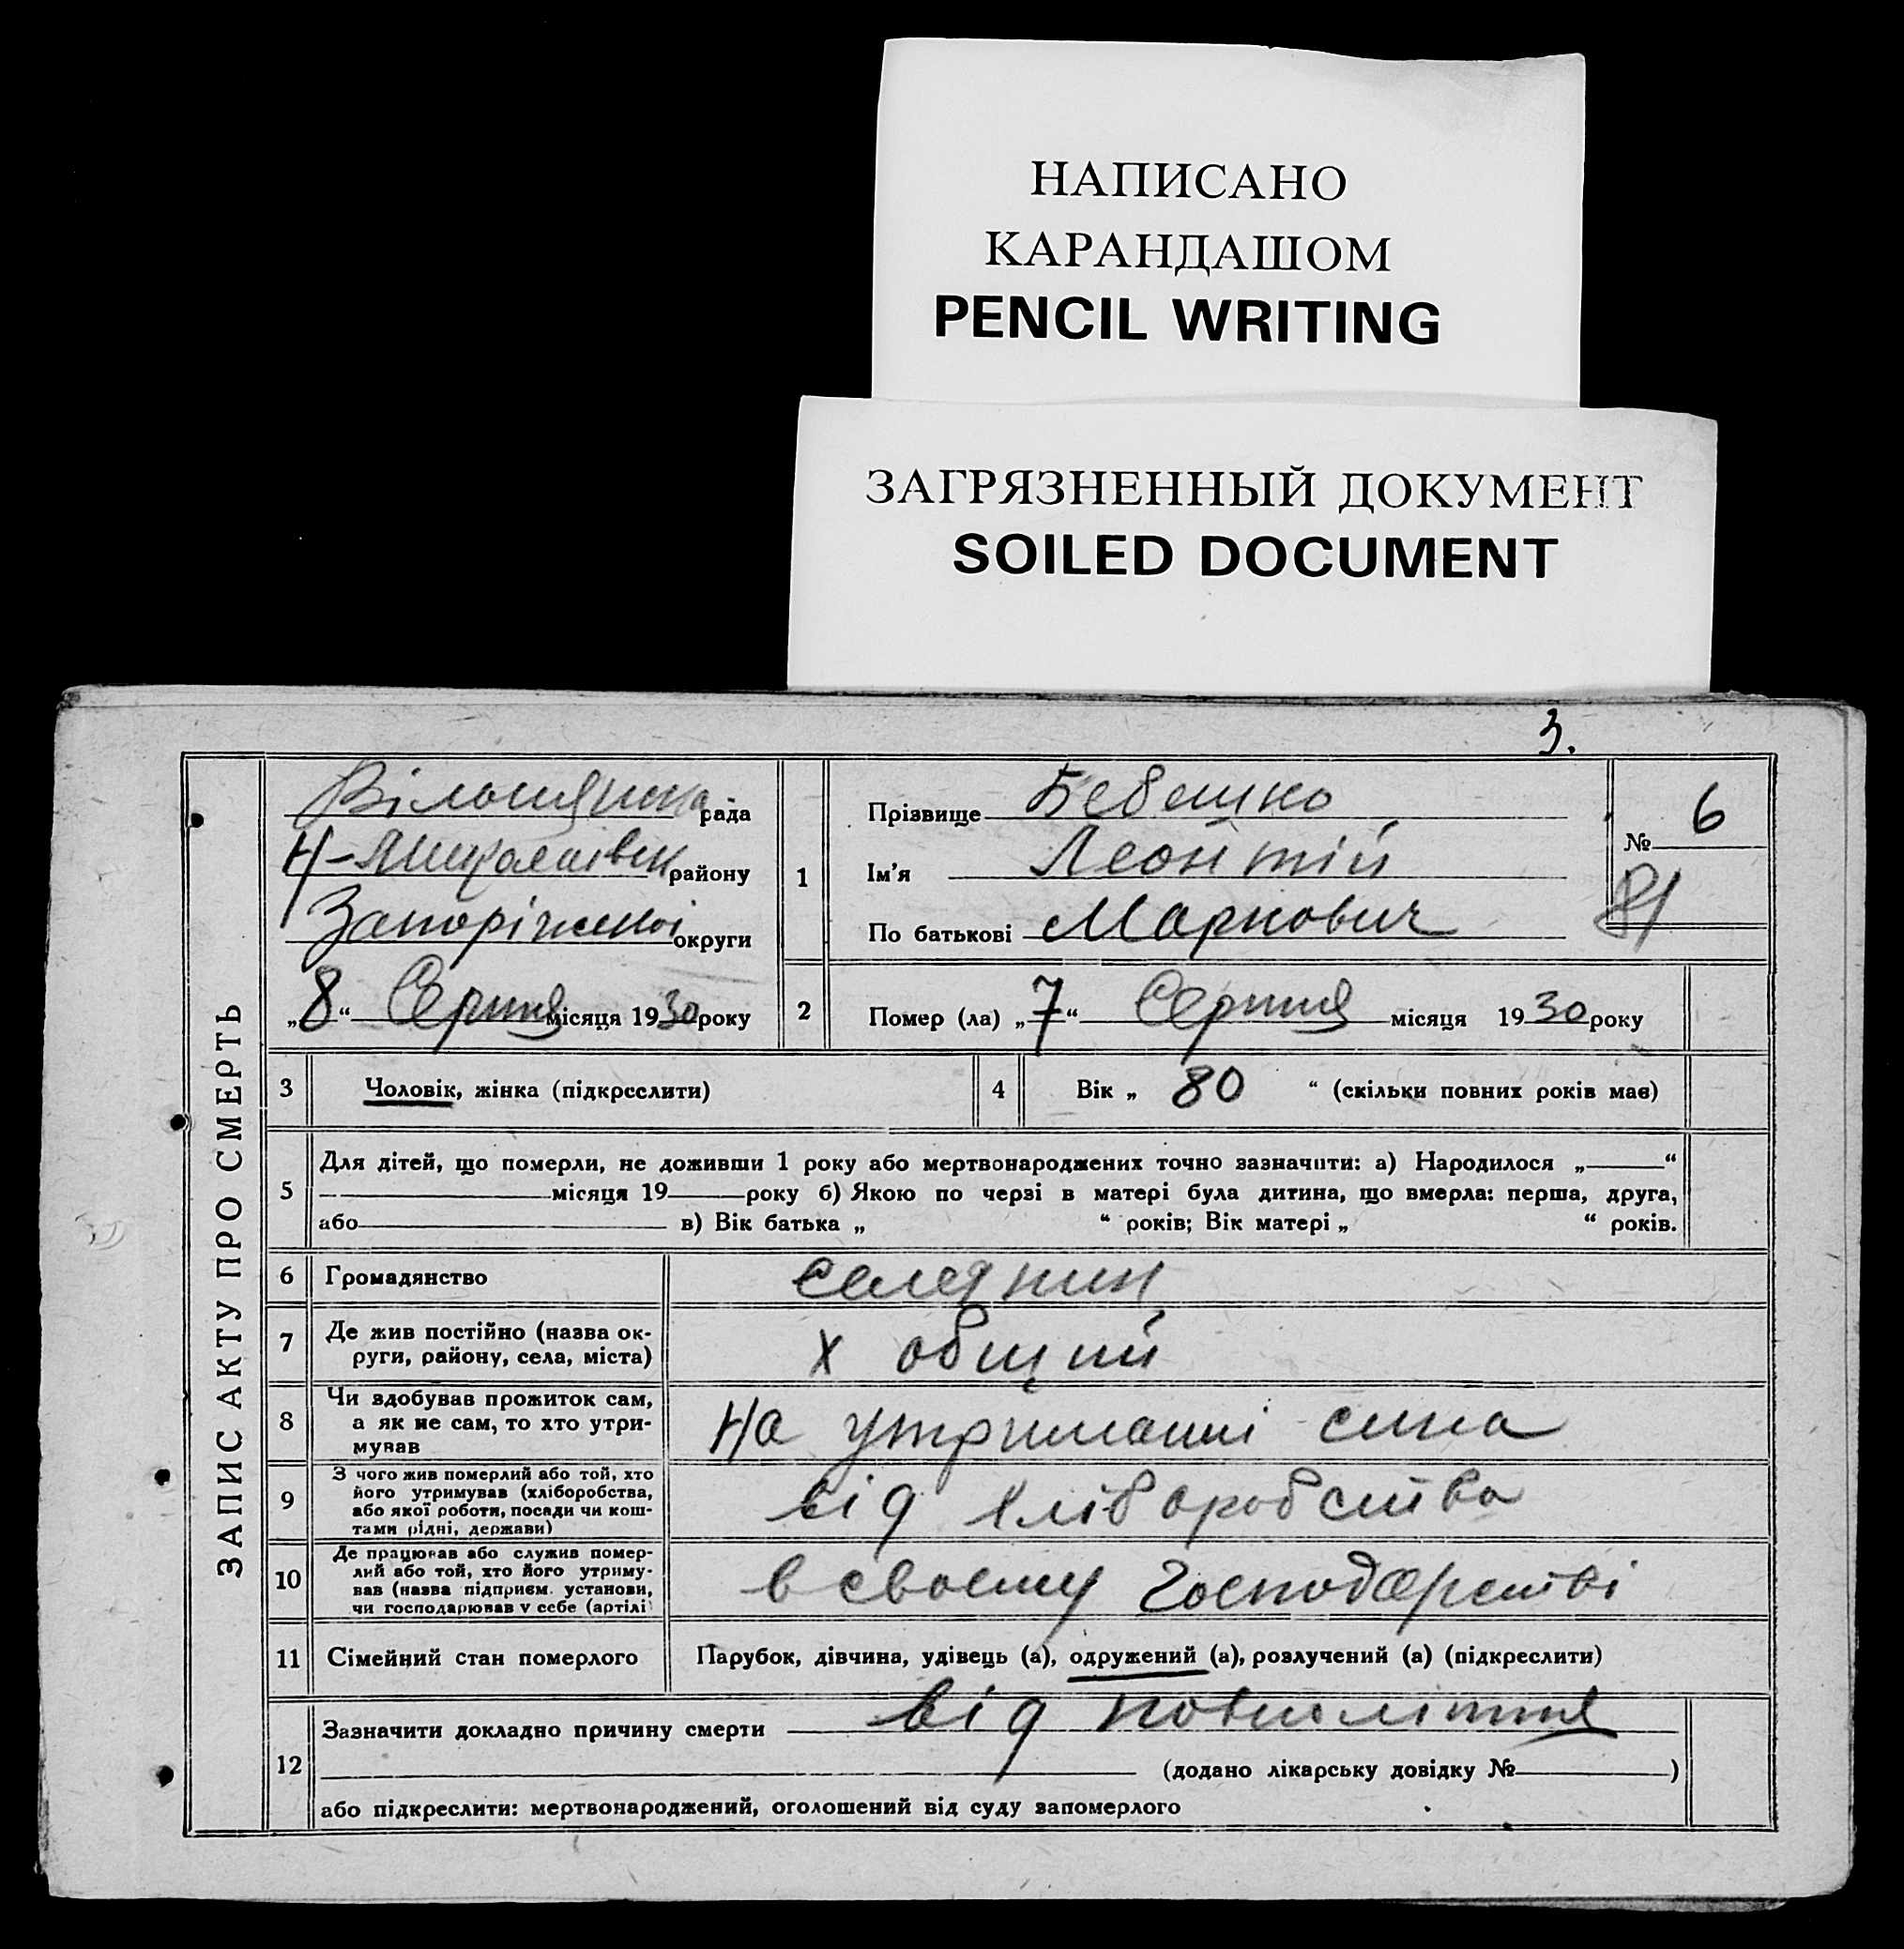 НАПИСАНО
КАРАНДАШОМ
PENCIL WRITING
ЗАГРЯЗНЕННЫЙ ДОКУМЕНТ
SOILED DOCUMENT
3.
ЗАПИС АКТУ ПРО СМЕРТЬ
рада
Н-Миколаівськ району
Запоріжської округи
„8“ Серпня місяця 1930 року
1
Прізвище Бебешко
Ім'я Леонтій
По батькові Маркович
№ 6
81
2 Помер (ла) „7“ Серпня місяця 1930 року
3 Чоловік, жінка (підкреслити)
4 Вік „ 80 “ (скільки повних років має)
5 Для дітей, що померли, не доживши 1 року або мертвонароджених точно зазначити: а) Народилося „ “
місяця 19 року б) Якою по черзі в матері була дитина, що вмерла: перша, друга,
або в) Вік батька „ “ років; Вік матері „ “ років.
6 Громадянство селянин
7 Де жив постійно (назва ок-
руги, району, села, міста) х общий
8 Чи здобував прожиток сам,
а як не сам, то хто утри-
мував На утриманні сина
9 З чого жив померлий або той, хто
його утримував (хліборобства,
або якої роботи, посади чи кош-
тами рідні, держави) від хліборобства
10 Де працював або служив помер-
лий або той, хто його утриму-
вав (назва підприєм. установи,
чи господарював у себе (артілі) в своєму господарстві
11 Сімейний стан померлого Парубок, дівчина, удівець (а), одружений (а), розлучений (а) (підкреслити)
12 Зазначити докладно причину смерти від повноліття
(додано лікарську довідку № )
або підкреслити: мертвонароджений, оголошений від суду запомерлого